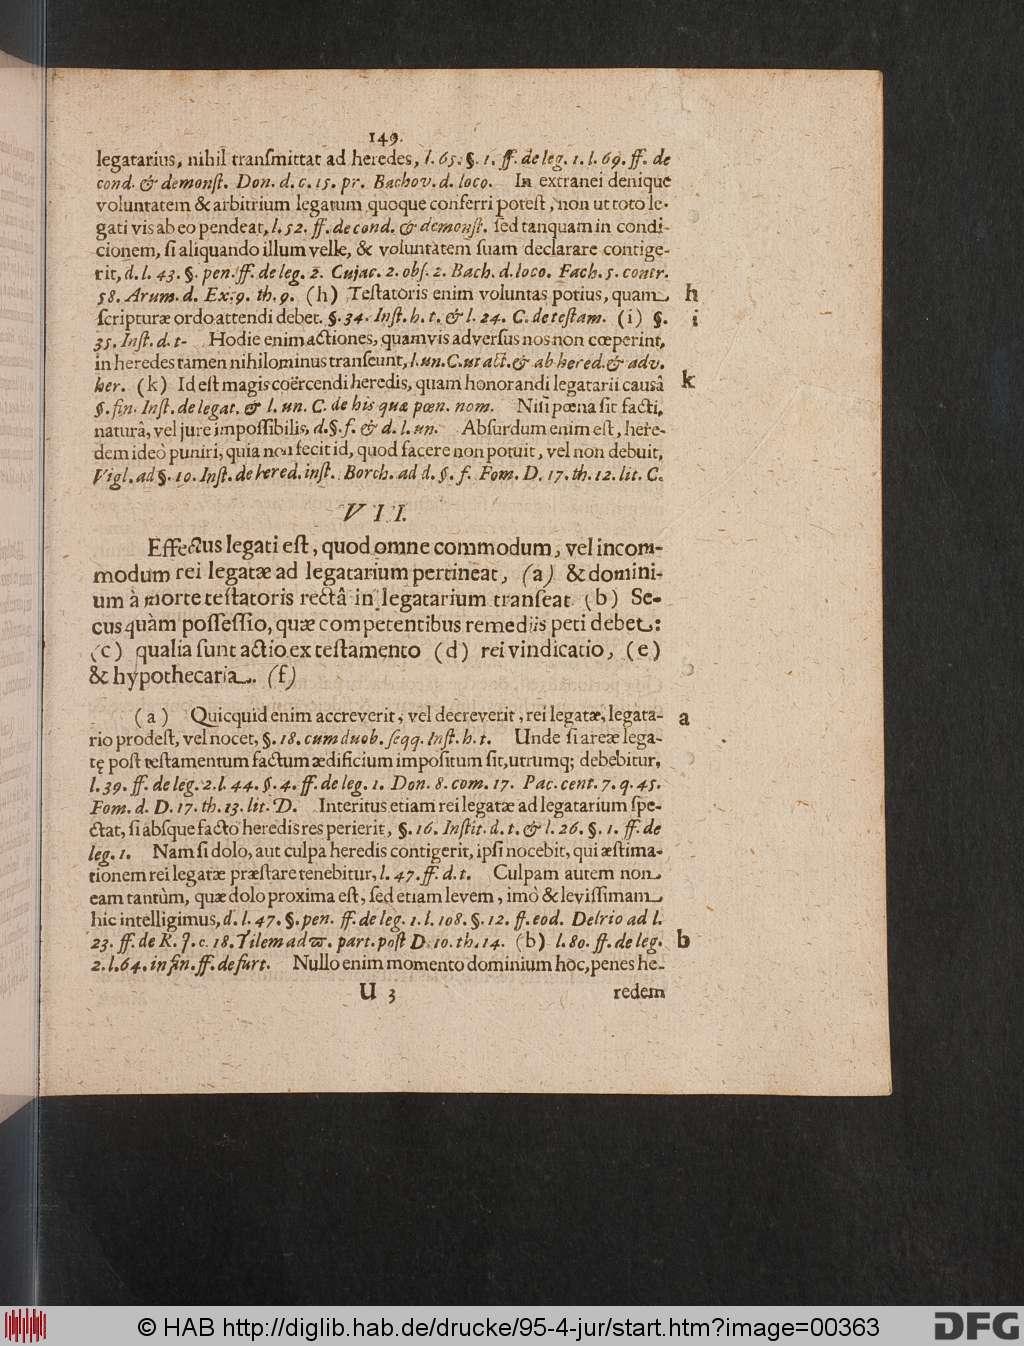 149.
legatarius, nihil tranſmittat ad heredes, l. 65. §. 1. ff. de leg. 1. l. 69. ff. de
cond. & demonſt. Don. d. c. 15. pr. Bachov. d. loco. In extranei denique
voluntatem & arbitrium legatum quoque conferri poteſt, non ut toto le-
gati vis ab eo pendeat, l. 52. ff. de cond. & demonſt. ſed tanquam in condi-
cionem, ſi aliquando illum velle, & voluntatem ſuam declarare contige-
rit, d. l. 43. §. pen. ff. de leg. 2. Cujac. 2. obſ. 2. Bach. d. loco. Fach. 5. contr.
58. Arum. d. Ex. 9. th. 9. (h) Teſtatoris enim voluntas potius, quam h
ſcripturæ ordo attendi debet. §. 34. Inſt. h. t. & l. 24. C. de teſtam. (i) §. i
35. Inſt. d. t. Hodie enim actiones, quamvis adverſus nos non cœperint,
in heredes tamen nihilominus tranſeunt, l. un. C. ut act. & ab hered. & adv.
her. (k) Id eſt magis coërcendi heredis, quam honorandi legatarii causâ k
§. fin. Inſt. de legat. & l. un. C. de his quæ pœn. nom. Niſi pœna ſit facti,
naturâ, vel jure impoſſibilis, d. §. f. & d. l. un. Abſurdum enim eſt, here-
dem ideò puniri, quia non fecit id, quod facere non potuit, vel non debuit,
Vigl. ad §. 10. Inſt. de hered. inſt. Borch. ad d. §. f. Fom. D. 17. th. 12. lit. C.
VII.
Effectus legati eſt, quod omne commodum, vel incom-
modum rei legatæ ad legatarium pertineat, (a) & domini-
um à morte teſtatoris rectâ in legatarium tranſeat (b) Se-
cus quàm poſſeſſio, quæ competentibus remediis peti debet:
(c) qualia ſunt actio ex teſtamento (d) rei vindicatio, (e)
& hypothecaria. (f)
(a) Quicquid enim accreverit, vel decreverit, rei legatæ, legata- a
rio prodeſt, vel nocet, §. 18. cum duob. ſeqq. Inſt. h. t. Unde ſi areæ lega-
tę poſt teſtamentum factum ædificium impoſitum ſit, utrumq; debebitur,
l. 39. ff. de leg. 2. l. 44. §. 4. ff. de leg. 1. Don. 8. com. 17. Pac. cent. 7. q. 45.
Fom. d. D. 17. th. 13. lit. D. Interitus etiam rei legatæ ad legatarium ſpe-
ctat, ſi abſque facto heredis res perierit, §. 16. Inſtit. d. t. & l. 26. §. 1. ff. de
leg. 1. Nam ſi dolo, aut culpa heredis contigerit, ipſi nocebit, qui æſtima-
tionem rei legatæ præſtare tenebitur, l. 47. ff. d. t. Culpam autem non
eam tantùm, quæ dolo proxima eſt, ſed etiam levem, imò & leviſſimam
hic intelligimus, d. l. 47. §. pen. ff. de leg. 1. l. 108. §. 12. ff. eod. Delrio ad l.
23. ff. de R. J. c. 18. Tilem ad ϖ. part. poſt D. 10. th. 14. (b) l. 80. ff. de leg. b
2. l. 64. in fin. ff. de furt. Nullo enim momento dominium hoc, penes he-
U 3 redem
© HAB http://diglib.hab.de/drucke/95-4-jur/start.htm?image=00363
DFG